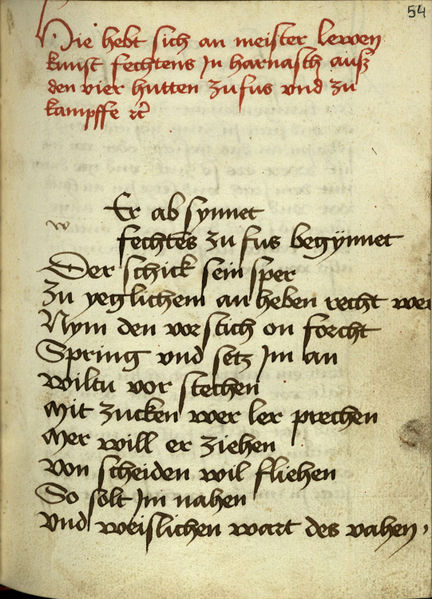 54
Hie hebt sich an meister lewen
kunst fechtens Jn harnasch auß
den vier hutten zu fus vnd zu
kampffe ꝛc̃
w
Er ab synnet
fechtens zu fus begÿnnet
Der schick sein sper
Zu yeglichem an heben recht wer
Nym den vorstich on forcht
Spring vnd setz Jm an
wiltu vor stechen
Mit zucken wer ler prechen
Mer will er ziehen
von scheiden wil fliehen
So solt Jm nahen
vnd weislichen wart des vahen,